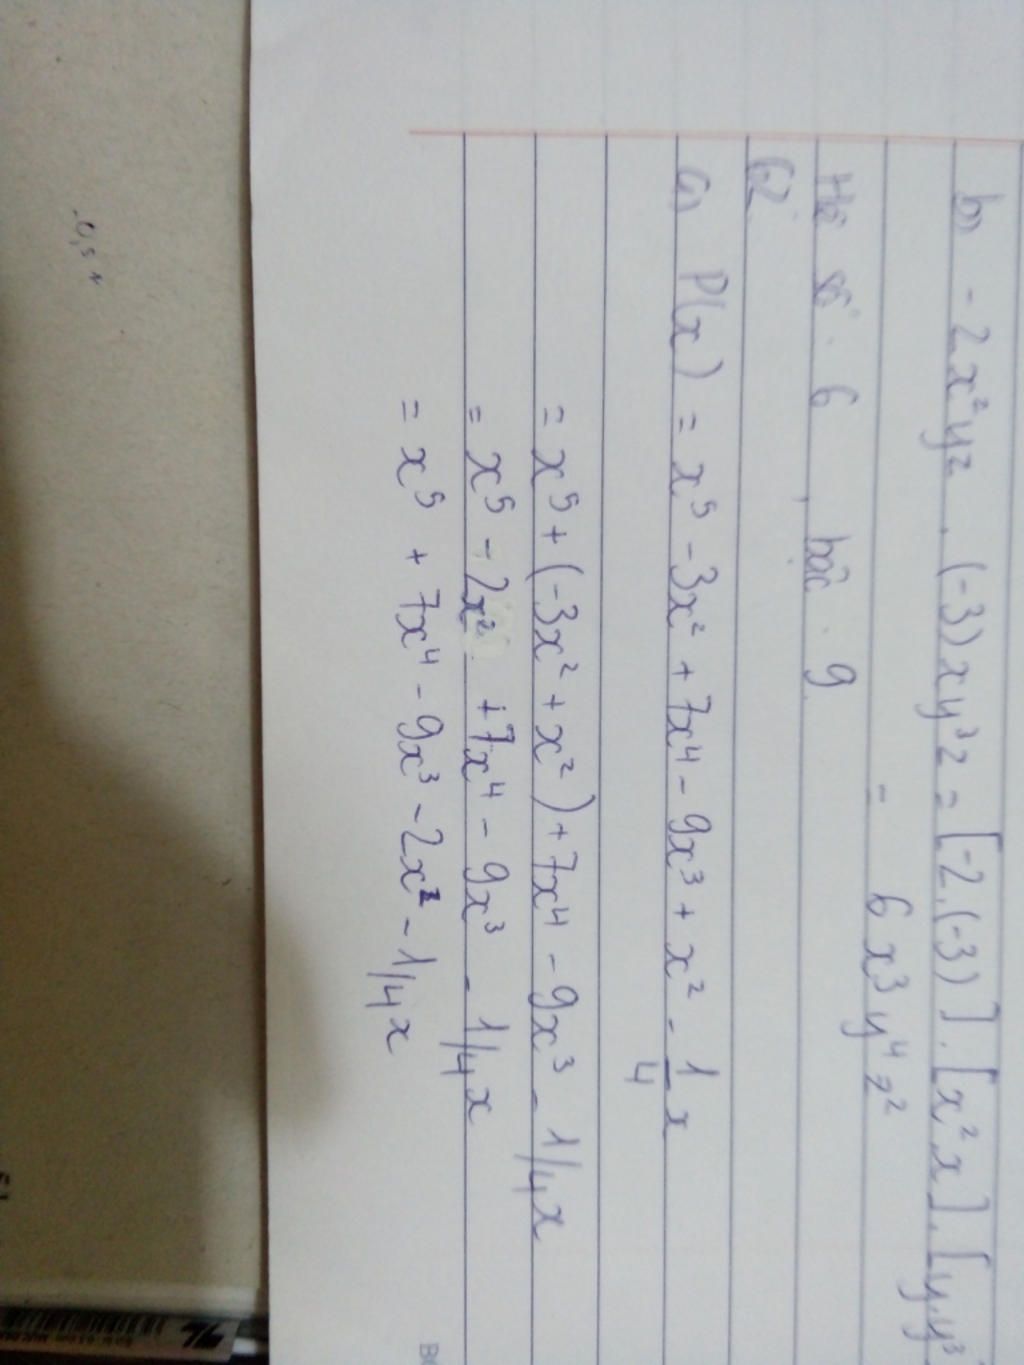 b) - 2x²yz . (-3)xy³z = [-2.(-3)].[x².x].[y.y³
= 6x³y⁴z²
Hệ số: 6, bậc: 9
B2:
a) P(x) = x⁵ - 3x² + 7x⁴ - 9x³ + x² - 1/4 x
= x⁵ + (-3x² + x²) + 7x⁴ - 9x³ - 1/4x
= x⁵ - 2x² + 7x⁴ - 9x³ - 1/4x
= x⁵ + 7x⁴ - 9x³ - 2x² - 1/4x